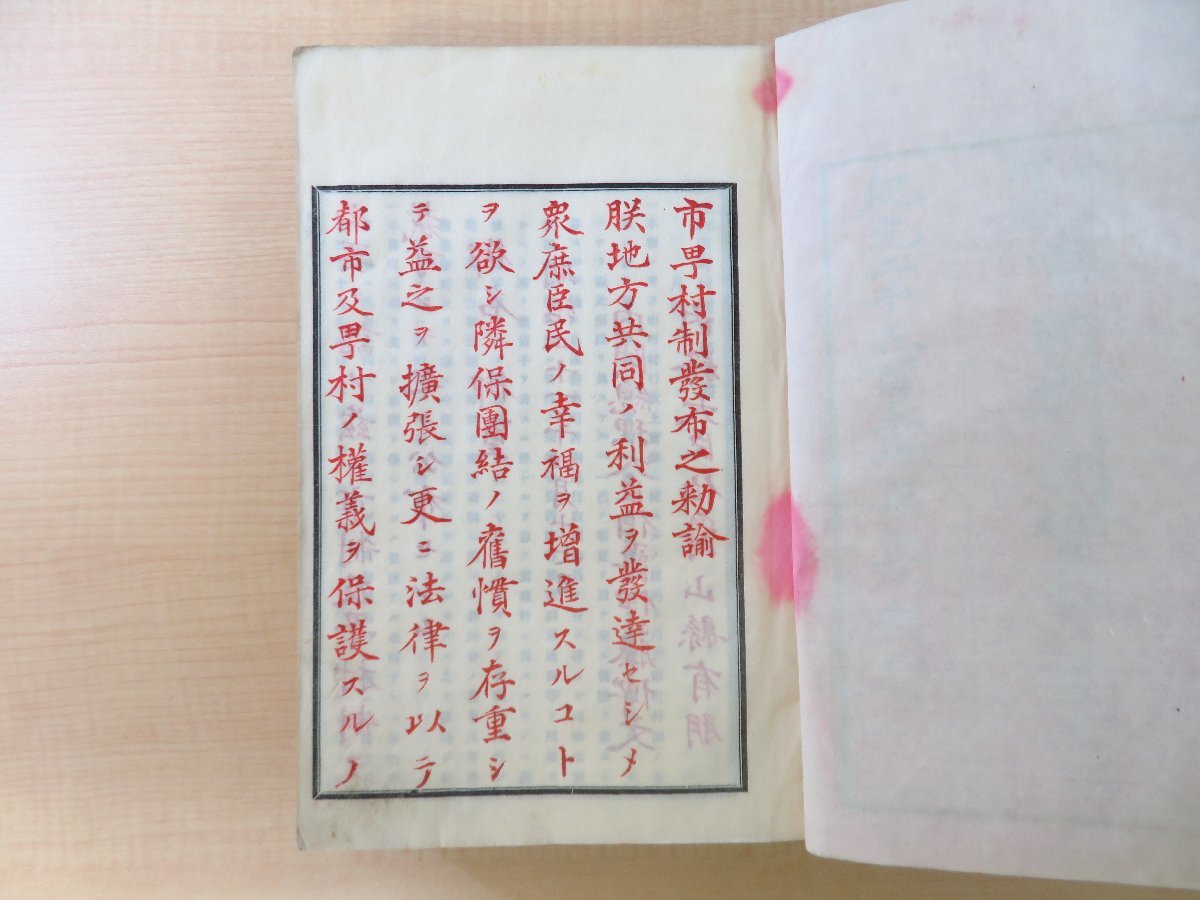 市甼村制發布之勅諭
朕地方共同ノ利益ヲ發達セシメ
衆庶臣民ノ幸福ヲ增進スルコト
ヲ欲シ隣保團結ノ舊慣ヲ存重シ
テ益之ヲ擴張シ更ニ法律ヲ以テ
都市及甼村ノ權義ヲ保護スルノ
山縣有朋